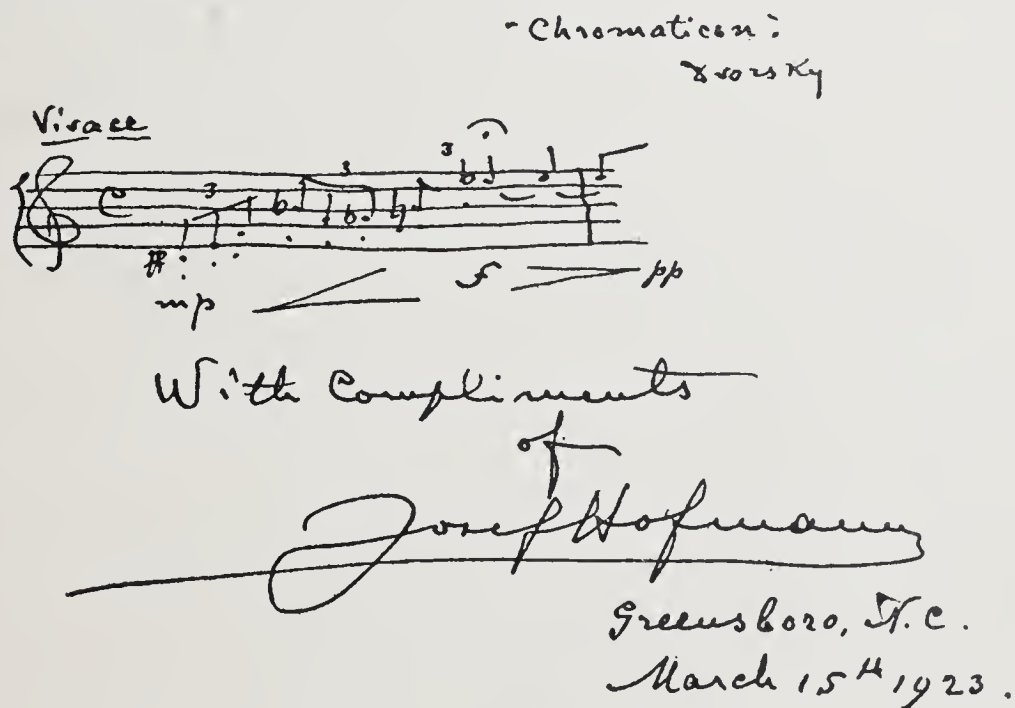 "Chromaticon:
Dvorsky
Vivace
3
3
3
mp
f
pp
With Compliments
of
Josef Hofmann
Greensboro, N.C.
March 15th 1923.